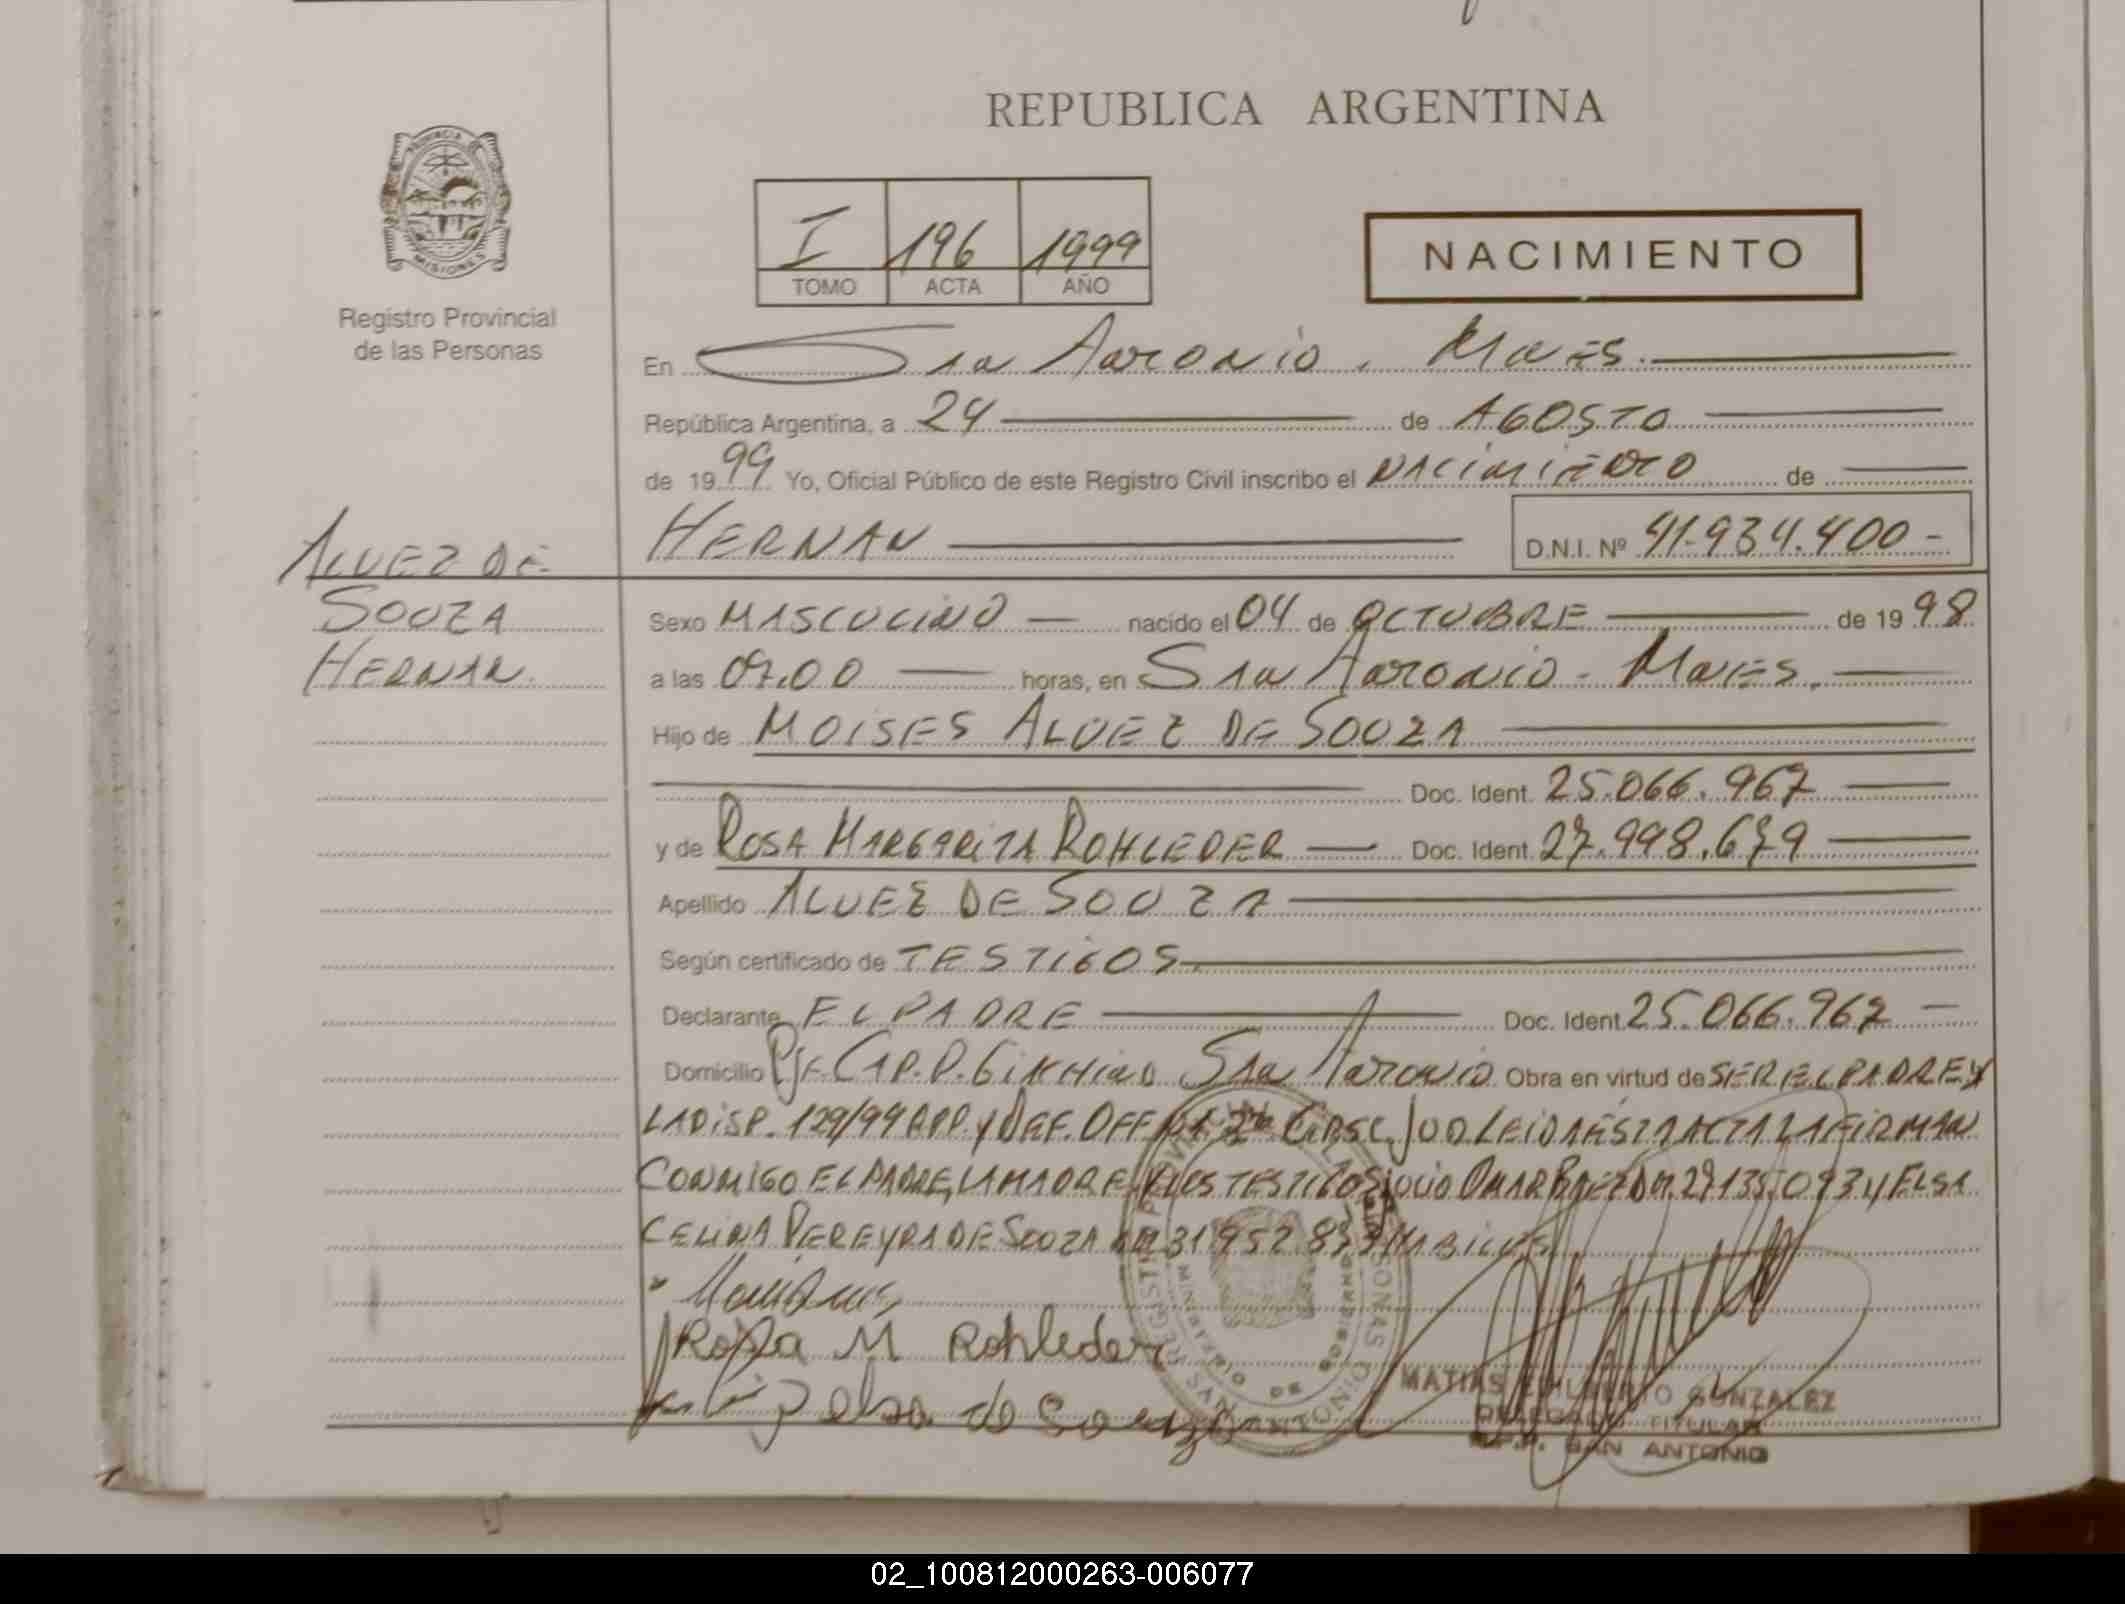 REPUBLICA ARGENTINA
PROVINCIA
MISIONES
Registro Provincial
de las Personas
I 196 1999
TOMO ACTA AÑO
NACIMIENTO
En San Antonio, Mnes.
República Argentina, a 24 de AGOSTO
de 1999 Yo, Oficial Público de este Registro Civil inscribo el NACIMIENTO de
HERNAN D.N.I. Nº 41.934.400-
ALVEZ DE
SOUZA
HERNAN.
Sexo MASCULINO nacido el 04 de OCTUBRE de 1998
a las 07.00 horas, en San Antonio - Mnes.
Hijo de MOISES ALVEZ DE SOUZA
Doc. Ident. 25.066.967
y de ROSA MARGARITA ROHLEDER Doc. Ident. 27.998.679
Apellido ALVEZ DE SOUZA
Según certificado de TESTIGOS.
Declarante EL PADRE Doc. Ident. 25.066.967
Domicilio San Antonio Obra en virtud de SER EL PADRE Y
LA DISP. 129/99 LEIDA ESTA ACTA LA FIRMAN
CONMIGO EL PADRE, LA MADRE Y LOS TESTIGOS JULIO OMAR Y ELSA
CELINA PEREYRA DE SOUZA HABILES
Rosa M Rohleder
elsa de Souza
MATIAS GONZALEZ
DELEGADO TITULAR
R.P.P. SAN ANTONIO
02_100812000263-006077